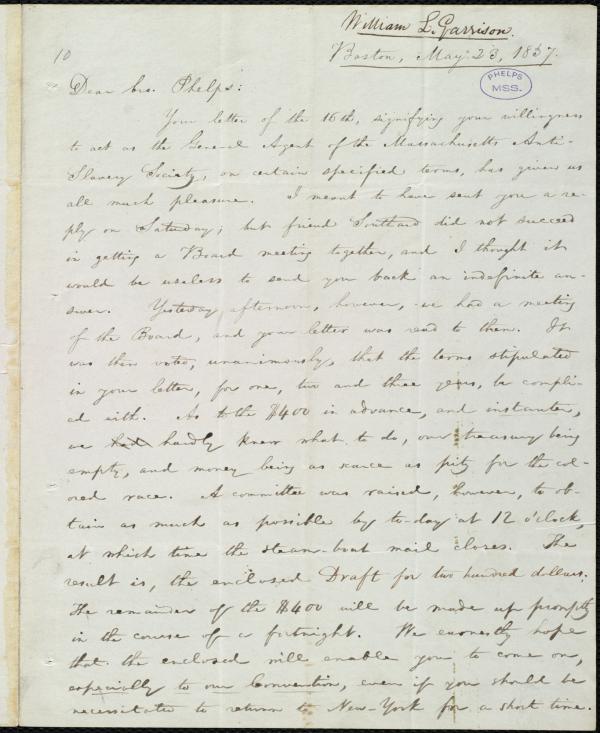 William L. Garrison.
10
Boston, May 23, 1837.
PHELPS
MSS.
Dear bro. Phelps:
Your letter of the 16th, signifying your willingness
to act as the General Agent of the Massachusetts Anti-
Slavery Society, on certain specified terms, has given us
all much pleasure. I meant to have sent you a re-
ply on Saturday; but friend Southard did not succeed
in getting a Board meeting together, and I thought it
would be useless to send you back an indefinite an-
swer. Yesterday afternoon, however, we had a meeting
of the Board, and your letter was read to them. It
was then voted, unanimously, that the terms stipulated
in your letter, for one, two and three years, be compli-
ed with. As to the $400 in advance, and instanter,
we had hardly knew what to do, our treasury being
empty, and money being as scarce as pity for the col-
ored race. A committee was raised, however, to ob-
tain as much as possible by to-day at 12 o'clock,
at which time the steam-boat mail closes. The
result is, the enclosed Draft for two hundred dollars.
The remainder of the $400 will be made up promptly
in the course of a fortnight. We earnestly hope
that the enclosed will enable you to come on,
especially to our Convention, even if you should be
necessitated to return to New-York for a short time.